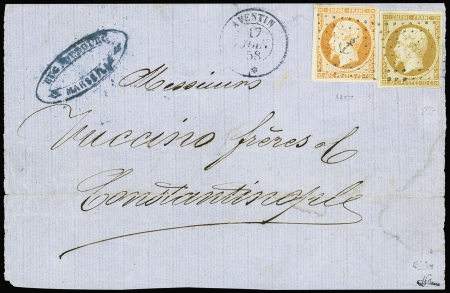 AVENTIN
17
JUIN
58
EMPIRE FRANC
EMPIRE FRANC
Messieurs
Vuccino frères &
Constantinople